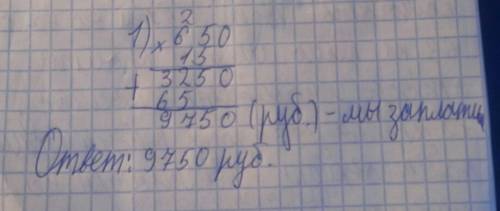 2
1) × 650
15
+ 3250
65
9750 (руб.) - мы заплатим
Ответ: 9750 руб.